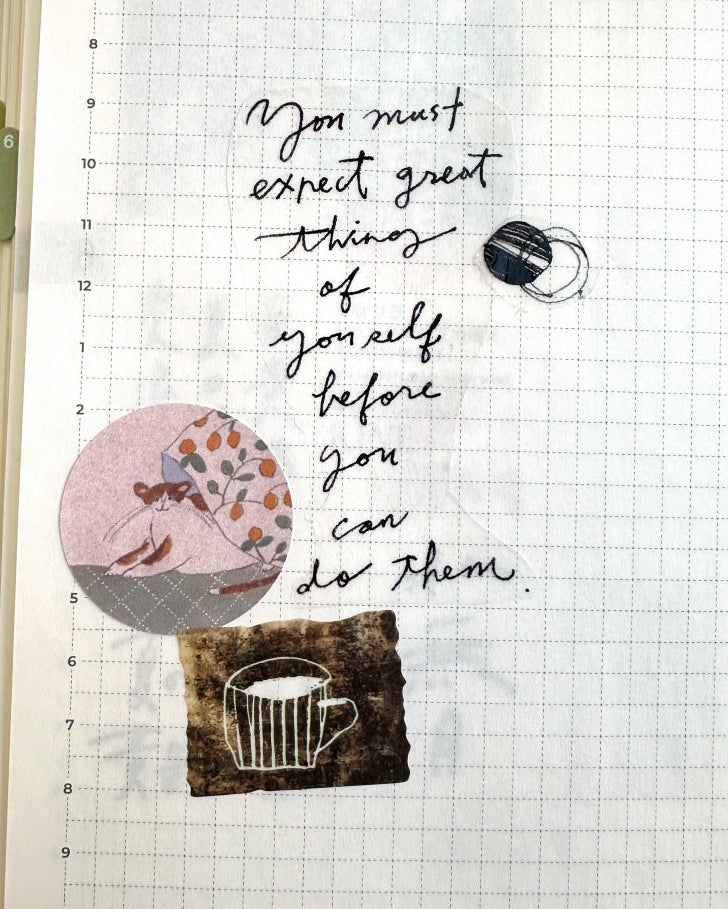 8
9
10
11
12
1
2
5
6
7
8
9
6
You must
expect great
thing
of
yourself
before
you
can
do them.